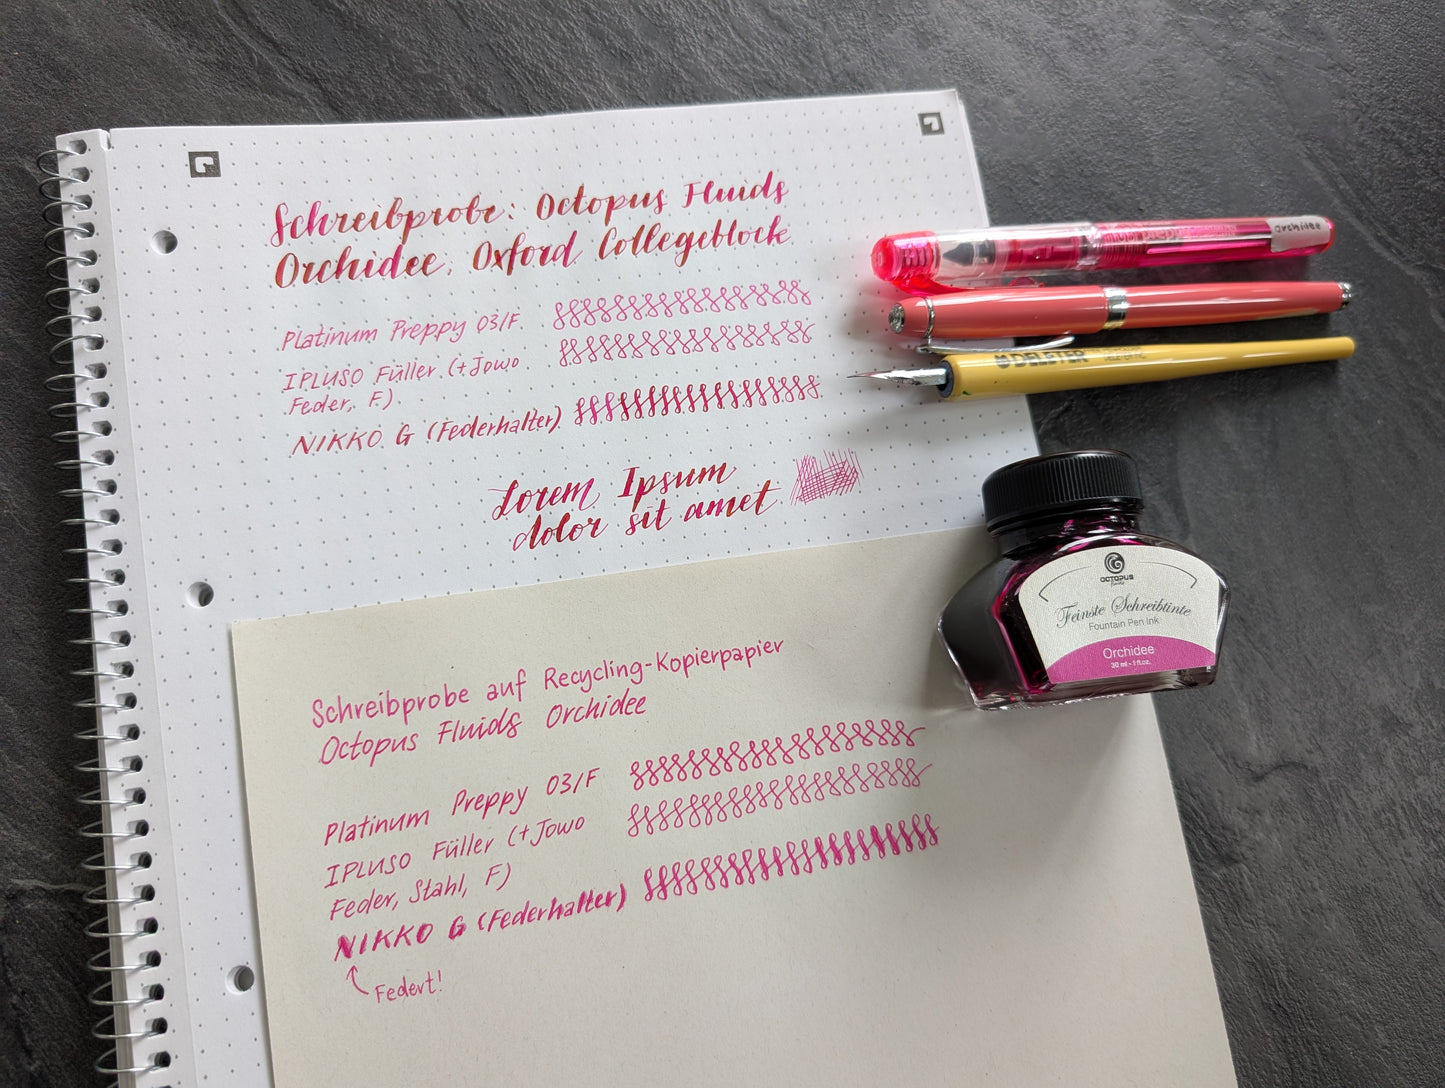 Schreibprobe: Octopus Fluids
Orchidee, Oxford Collegeblock
Platinum Preppy 03/F
IPLUSO Füller (+Jowo
Feder, F)
NIKKO G (Federhalter)
Lorem Ipsum
dolor sit amet
Orchidee
DELETER
OCTOPUS
Feinste Schreibtinte
Fountain Pen Ink
Orchidee
30 ml - 1 fl.oz.
Schreibprobe auf Recycling-Kopierpapier
Octopus Fluids Orchidee
Platinum Preppy 03/F
IPLUSO Füller (+Jowo
Feder, Stahl, F)
NIKKO G (Federhalter)
Federt!